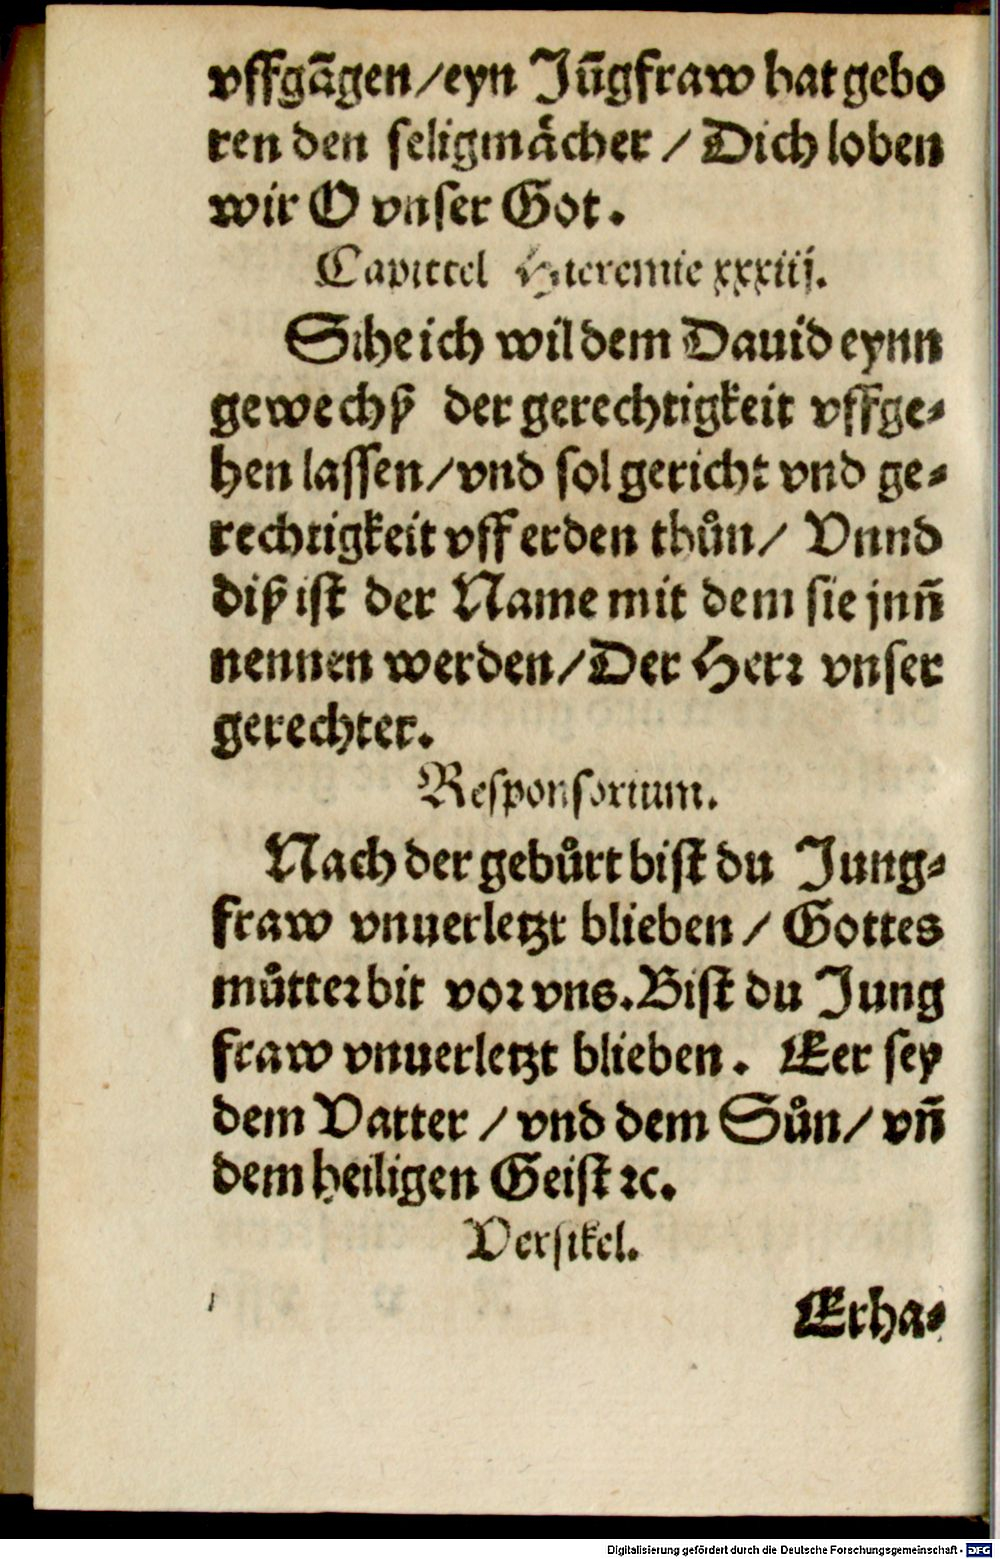 vffgãgen/eyn Jũgfraw hat gebo
ren den seligmåcher / Dich loben
wir O vnser Got.
Capittel Hieremie xxxiij.
Sihe ich wil dem Dauid eynn
gewechß der gerechtigkeit vffge-
hen lassen/vnd sol gericht vnd ge-
rechtigkeit vff erden thůn/ Vnnd
diß ist der Name mit dem sie jnñ
nennen werden/Der Herr vnser
gerechter.
Responsorium.
Nach der gebůrt bist du Jung-
fraw vnuerletzt blieben / Gottes
můtter bit vor vns. Bist du Jung
fraw vnuerletzt blieben. Eer sey
dem Vatter / vnd dem Sůn/ vñ
dem heiligen Geist ꝛc.
Versikel.
Erha-
Digitalisierung gefördert durch die Deutsche Forschungsgemeinschaft - DFG